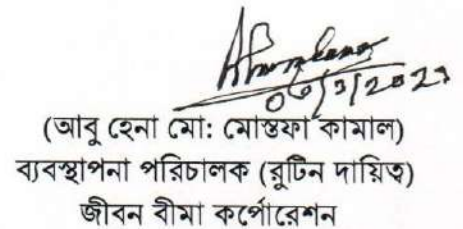 (আবু হেনা মো: মোস্তফা কামাল)
ব্যবস্থাপনা পরিচালক (রুটিন দায়িত্ব)
জীবন বীমা কর্পোরেশন